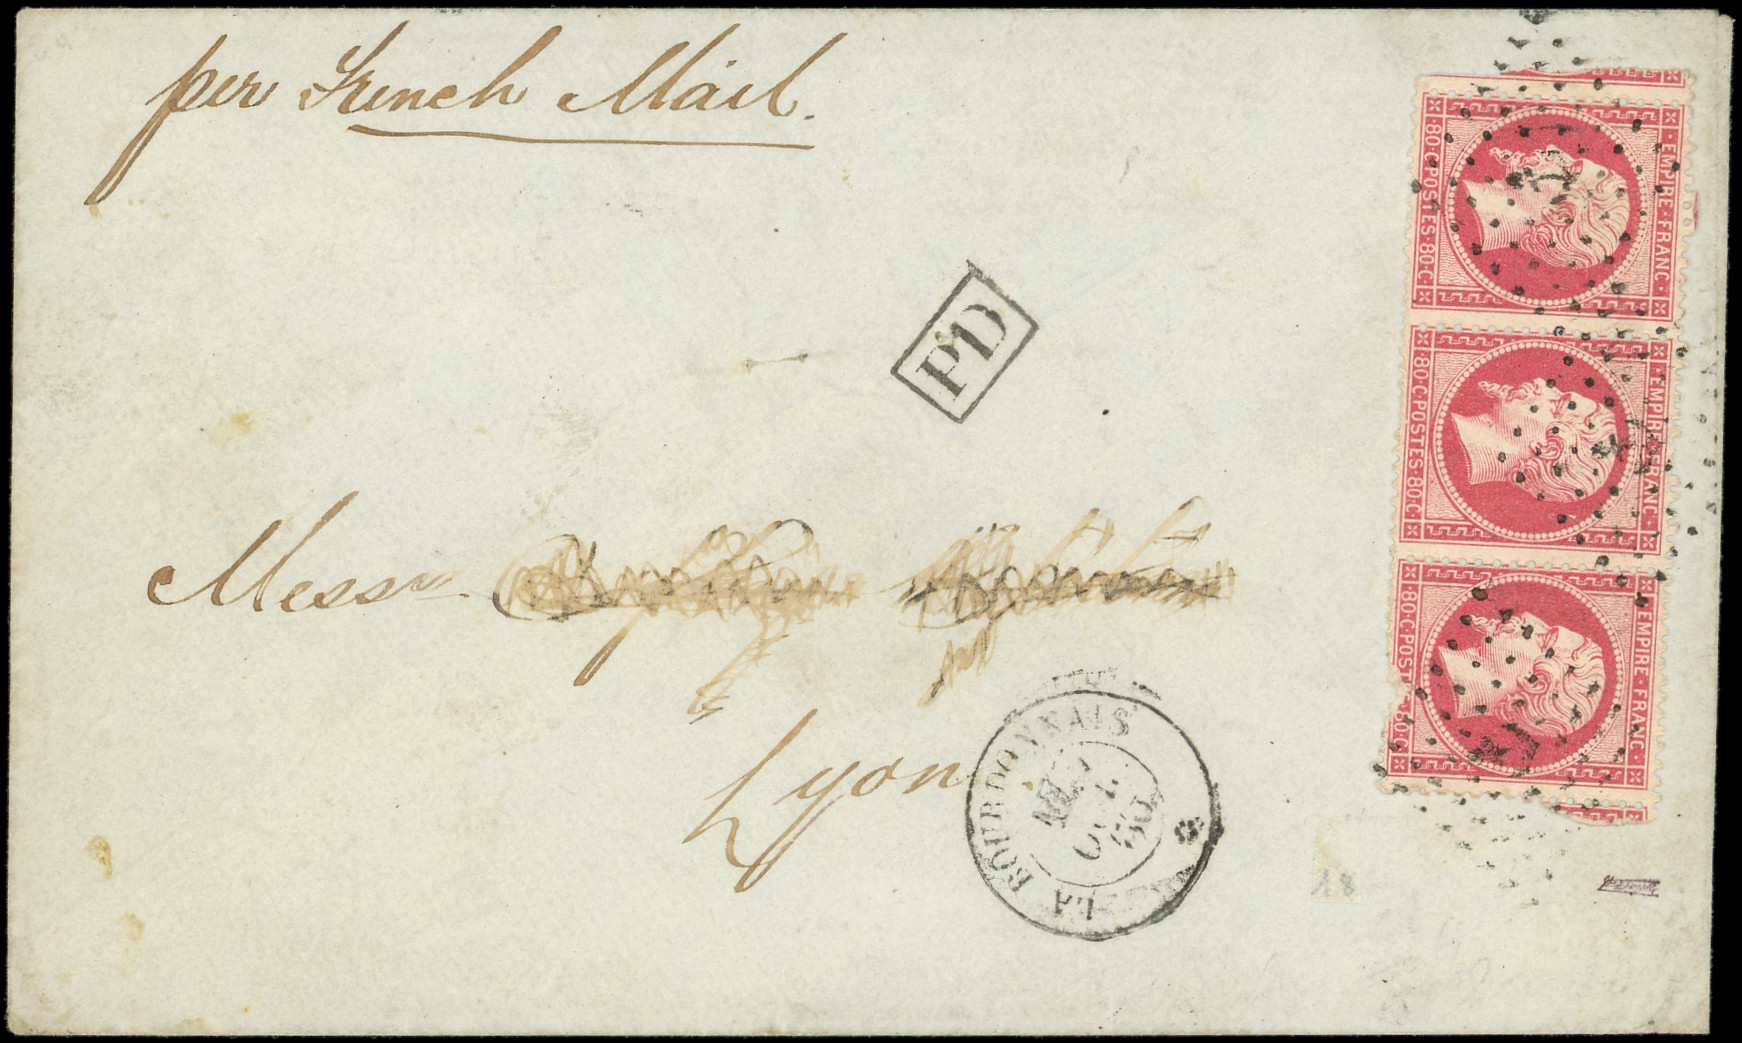 per French Mail.
PD
EMPIRE·FRANC·
80·C·POSTES·80·C
EMPIRE·FRANC·
80·C·POSTES·80·C
EMPIRE·FRANC·
80·C·POSTES·80·C
Messrs
Lyon
LA BOURDONNAIS
18